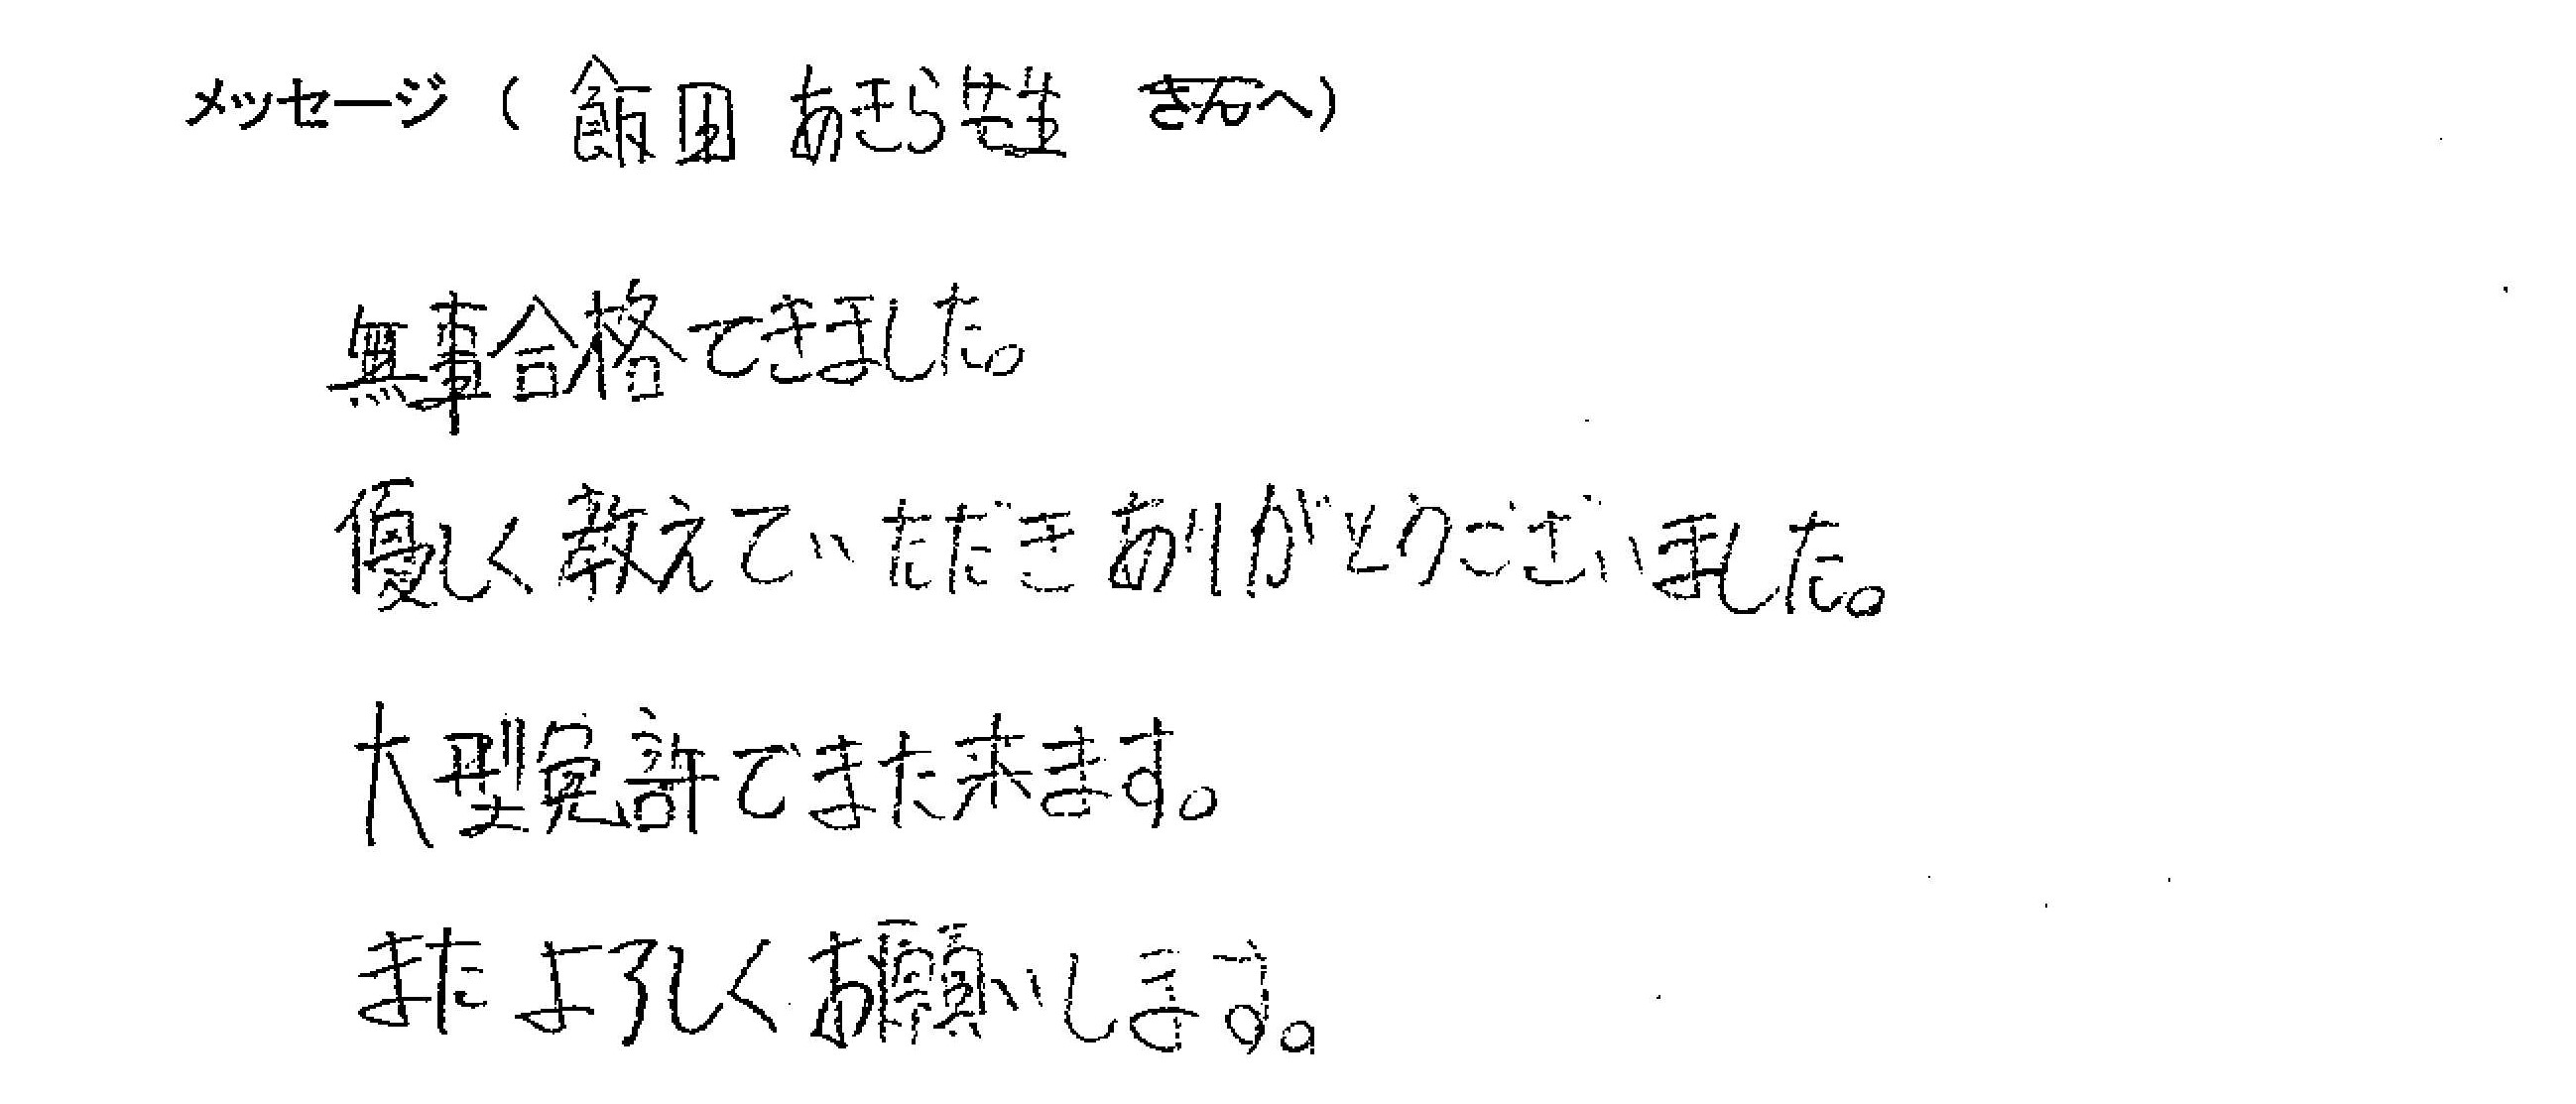 メッセージ（飯田 あきら先生 さんへ）
無事合格できました。
優しく教えていただきありがとうございました。
大型免許でまた来ます。
また よろしくお願いします。